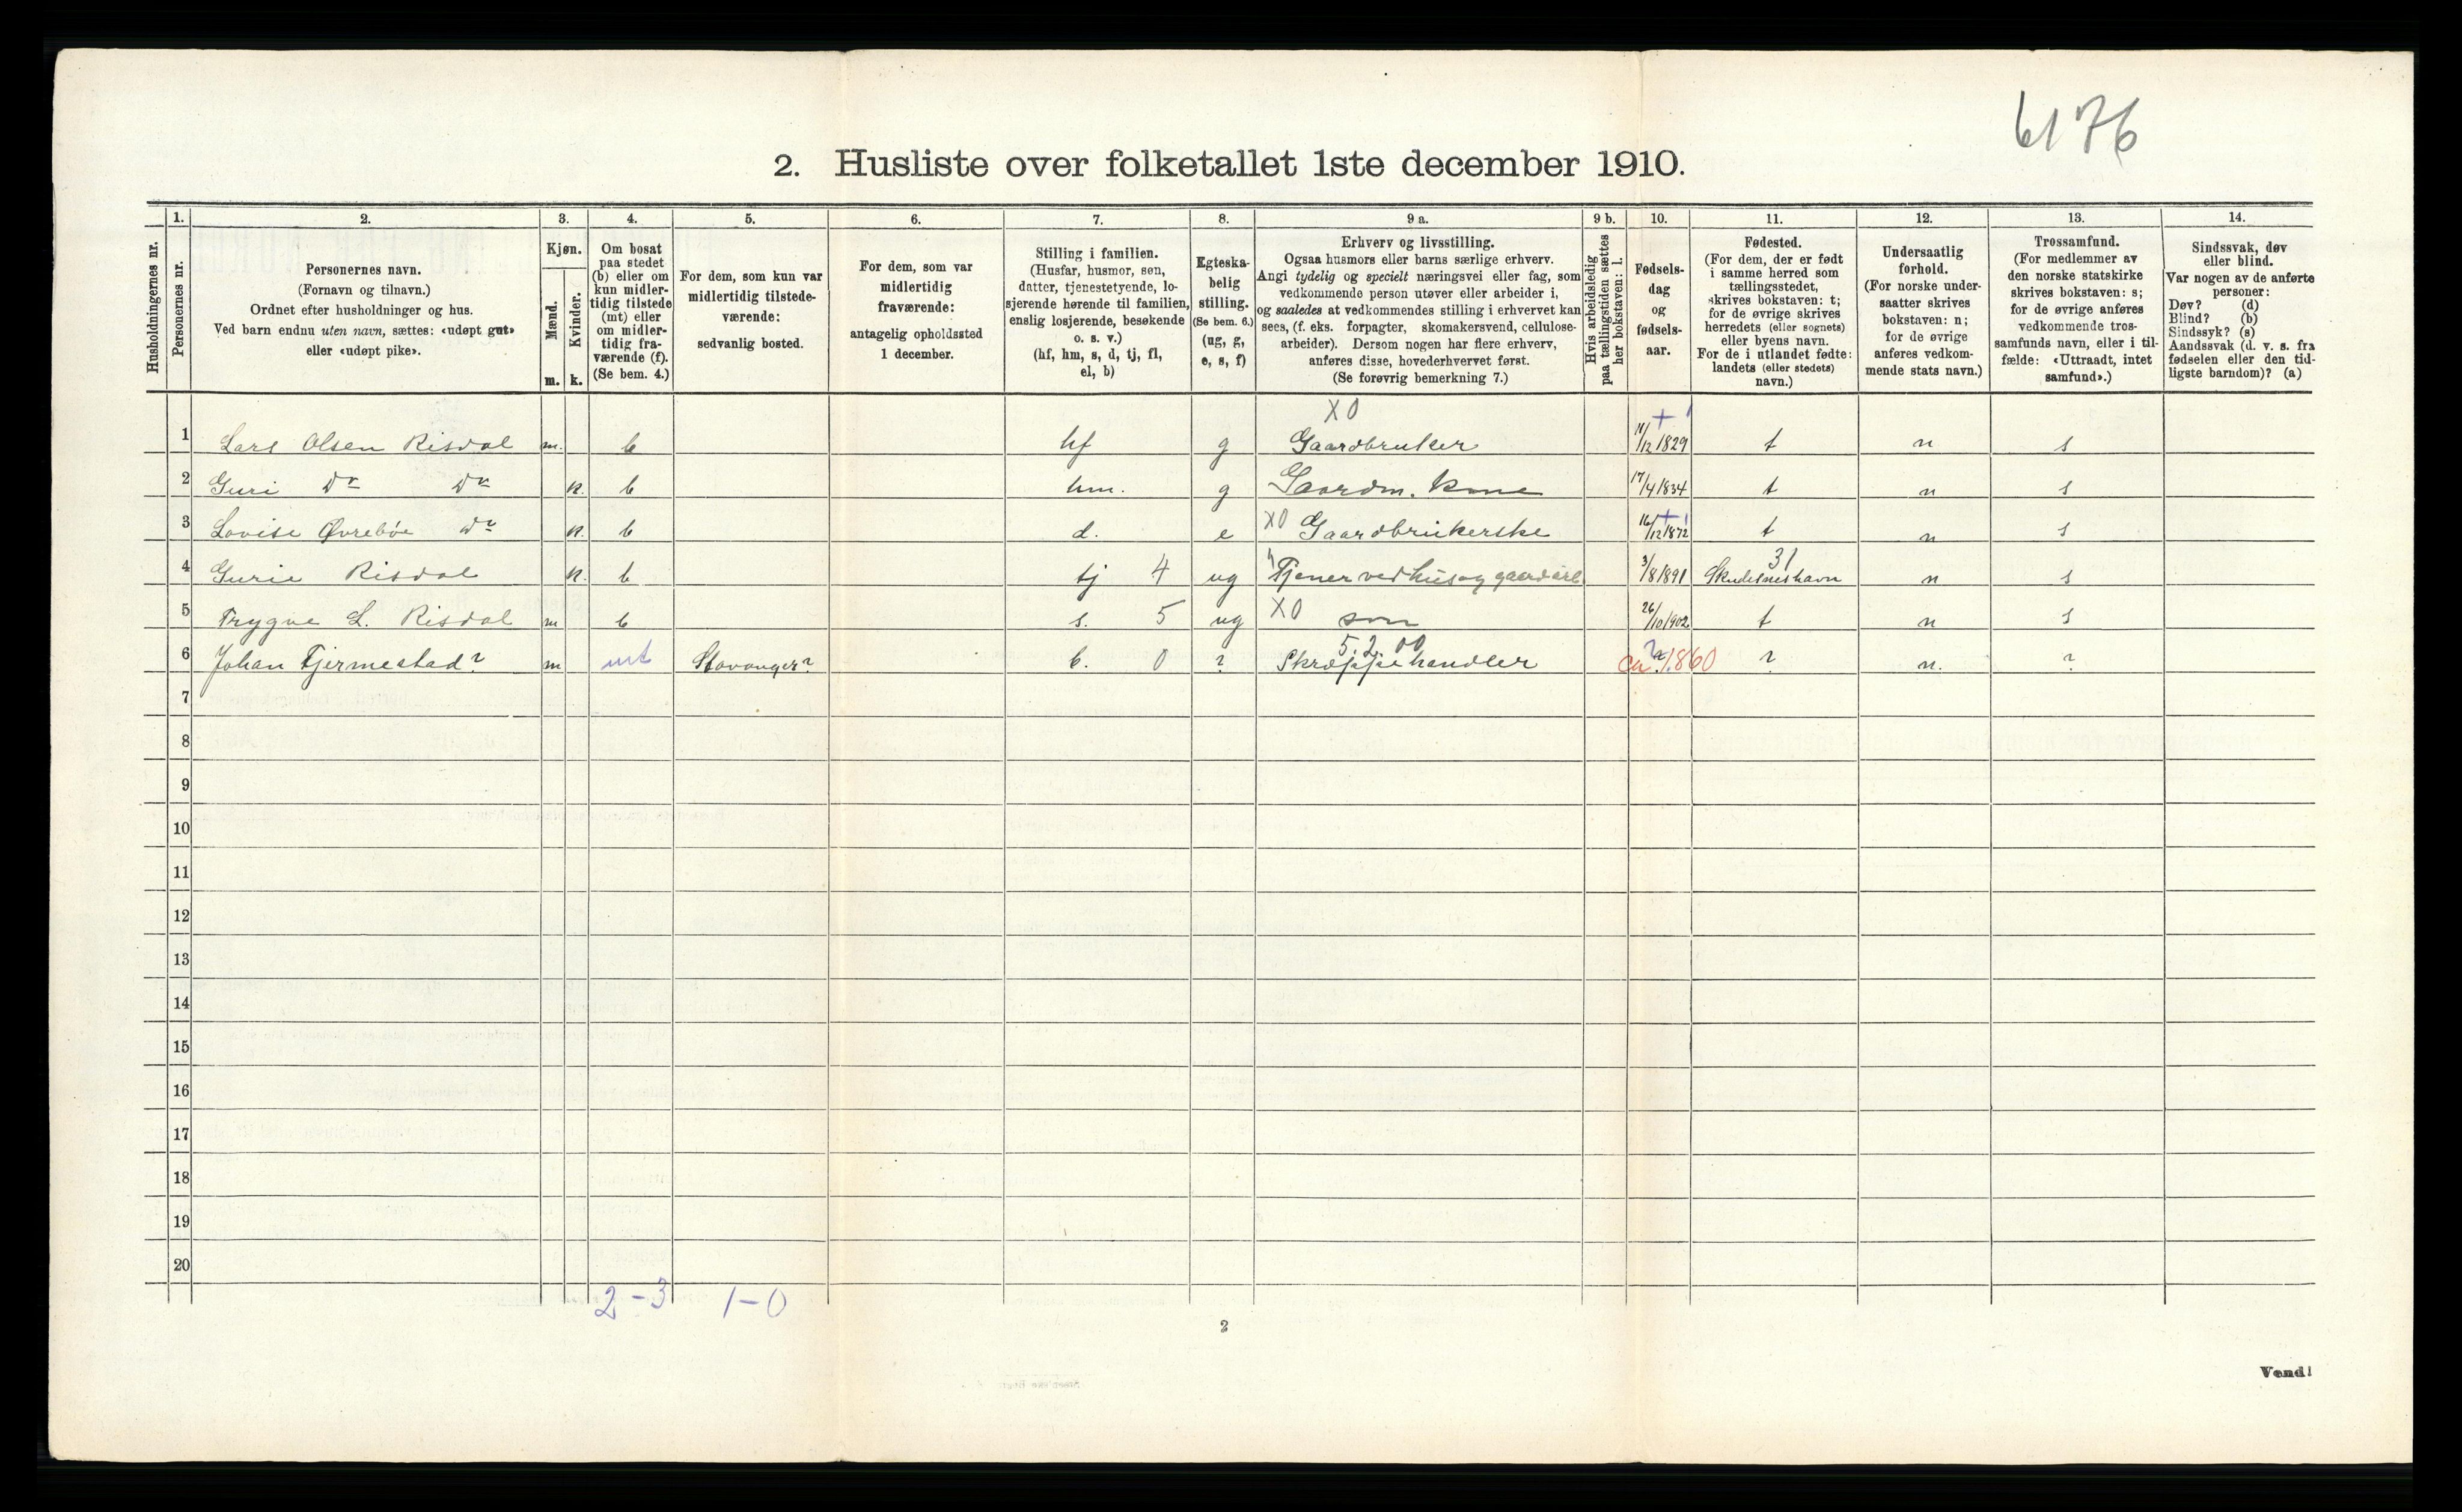 6176
2. Husliste over folketallet 1ste december 1910.
Husholdningernes nr.
1. Personernes nr.
2.
Personernes navn.
(Fornavn og tilnavn.)
Ordnet efter husholdninger og hus.
Ved barn endnu uten navn, sættes: «udøpt gut»
eller «udøpt pike».
3.
Kjøn.
Mænd. Kvinder.
m. k.
4.
Om bosat
paa stedet
(b) eller om
kun midler-
tidig tilstede
(mt) eller
om midler-
tidig fra-
værende (f).
(Se bem. 4.)
5.
For dem, som kun var
midlertidig tilstede-
værende:
sedvanlig bosted.
6.
For dem, som var
midlertidig
fraværende:
antagelig opholdssted
1 december.
7.
Stilling i familien.
(Husfar, husmor, søn,
datter, tjenestetyende, lo-
sjerende hørende til familien,
enslig losjerende, besøkende
o. s. v.)
(hf, hm, s, d, tj, fl,
el, b)
8.
Egteska-
belig
stilling.
(Se bem. 6.)
(ug, g,
e, s, f)
9 a.
Erhverv og livsstilling.
Ogsaa husmors eller barns særlige erhverv.
Angi tydelig og specielt næringsvei eller fag, som
vedkommende person utøver eller arbeider i,
og saaledes at vedkommendes stilling i erhvervet kan
sees, (f. eks. forpagter, skomakersvend, cellulose-
arbeider). Dersom nogen har flere erhverv,
anføres disse, hovederhvervet først.
(Se forøvrig bemerkning 7.)
9 b.
Hvis arbeidsledig
paa tællingstiden sættes
her bokstaven: l.
10.
Fødsels-
dag
og
fødsels-
aar.
11.
Fødested.
(For dem, der er født
i samme herred som
tællingsstedet,
skrives bokstaven: t;
for de øvrige skrives
herredets (eller sognets)
eller byens navn.
For de i utlandet fødte:
landets (eller stedets)
navn.)
12.
Undersaatlig
forhold.
(For norske under-
saatter skrives
bokstaven: n;
for de øvrige
anføres vedkom-
mende stats navn.)
13.
Trossamfund.
(For medlemmer av
den norske statskirke
skrives bokstaven: s;
for de øvrige anføres
vedkommende tros-
samfunds navn, eller i til-
fælde: «Uttraadt, intet
samfund».)
14.
Sindssvak, døv
eller blind.
Var nogen av de anførte
personer:
Døv? (d)
Blind? (b)
Sindssyk? (s)
Aandssvak (d. v. s. fra
fødselen eller den tid-
ligste barndom)? (a)
X0
1 Lars Olsen Risdal m. b hf g Gaardbruker 11/12 1829 t n s
2 Guri Do Do k. b hm. g Gaardm. kone 17/4 1834 t n s
3 Lovise Øvrebøe do k. b d. e X0 Gaardbrukerske 16/12 1872 t n s
31
4 Gurie Risdal k. b tj 4 ug Tjener ved hus og gaardarb 3/8 1891 Skudesneshavn n s
5 Trygve L. Risdal m b s. 5 ug X0 søn 26/10 1902 t n s
5.2.00
6 Johan Tjermestad? m mt Stavanger? b. 0 ? Skræppehandler ca. 1860 ? n. ?
7
8
9
10
11
12
13
14
15
16
17
18
19
20
2-3 1-0
2
Vend!